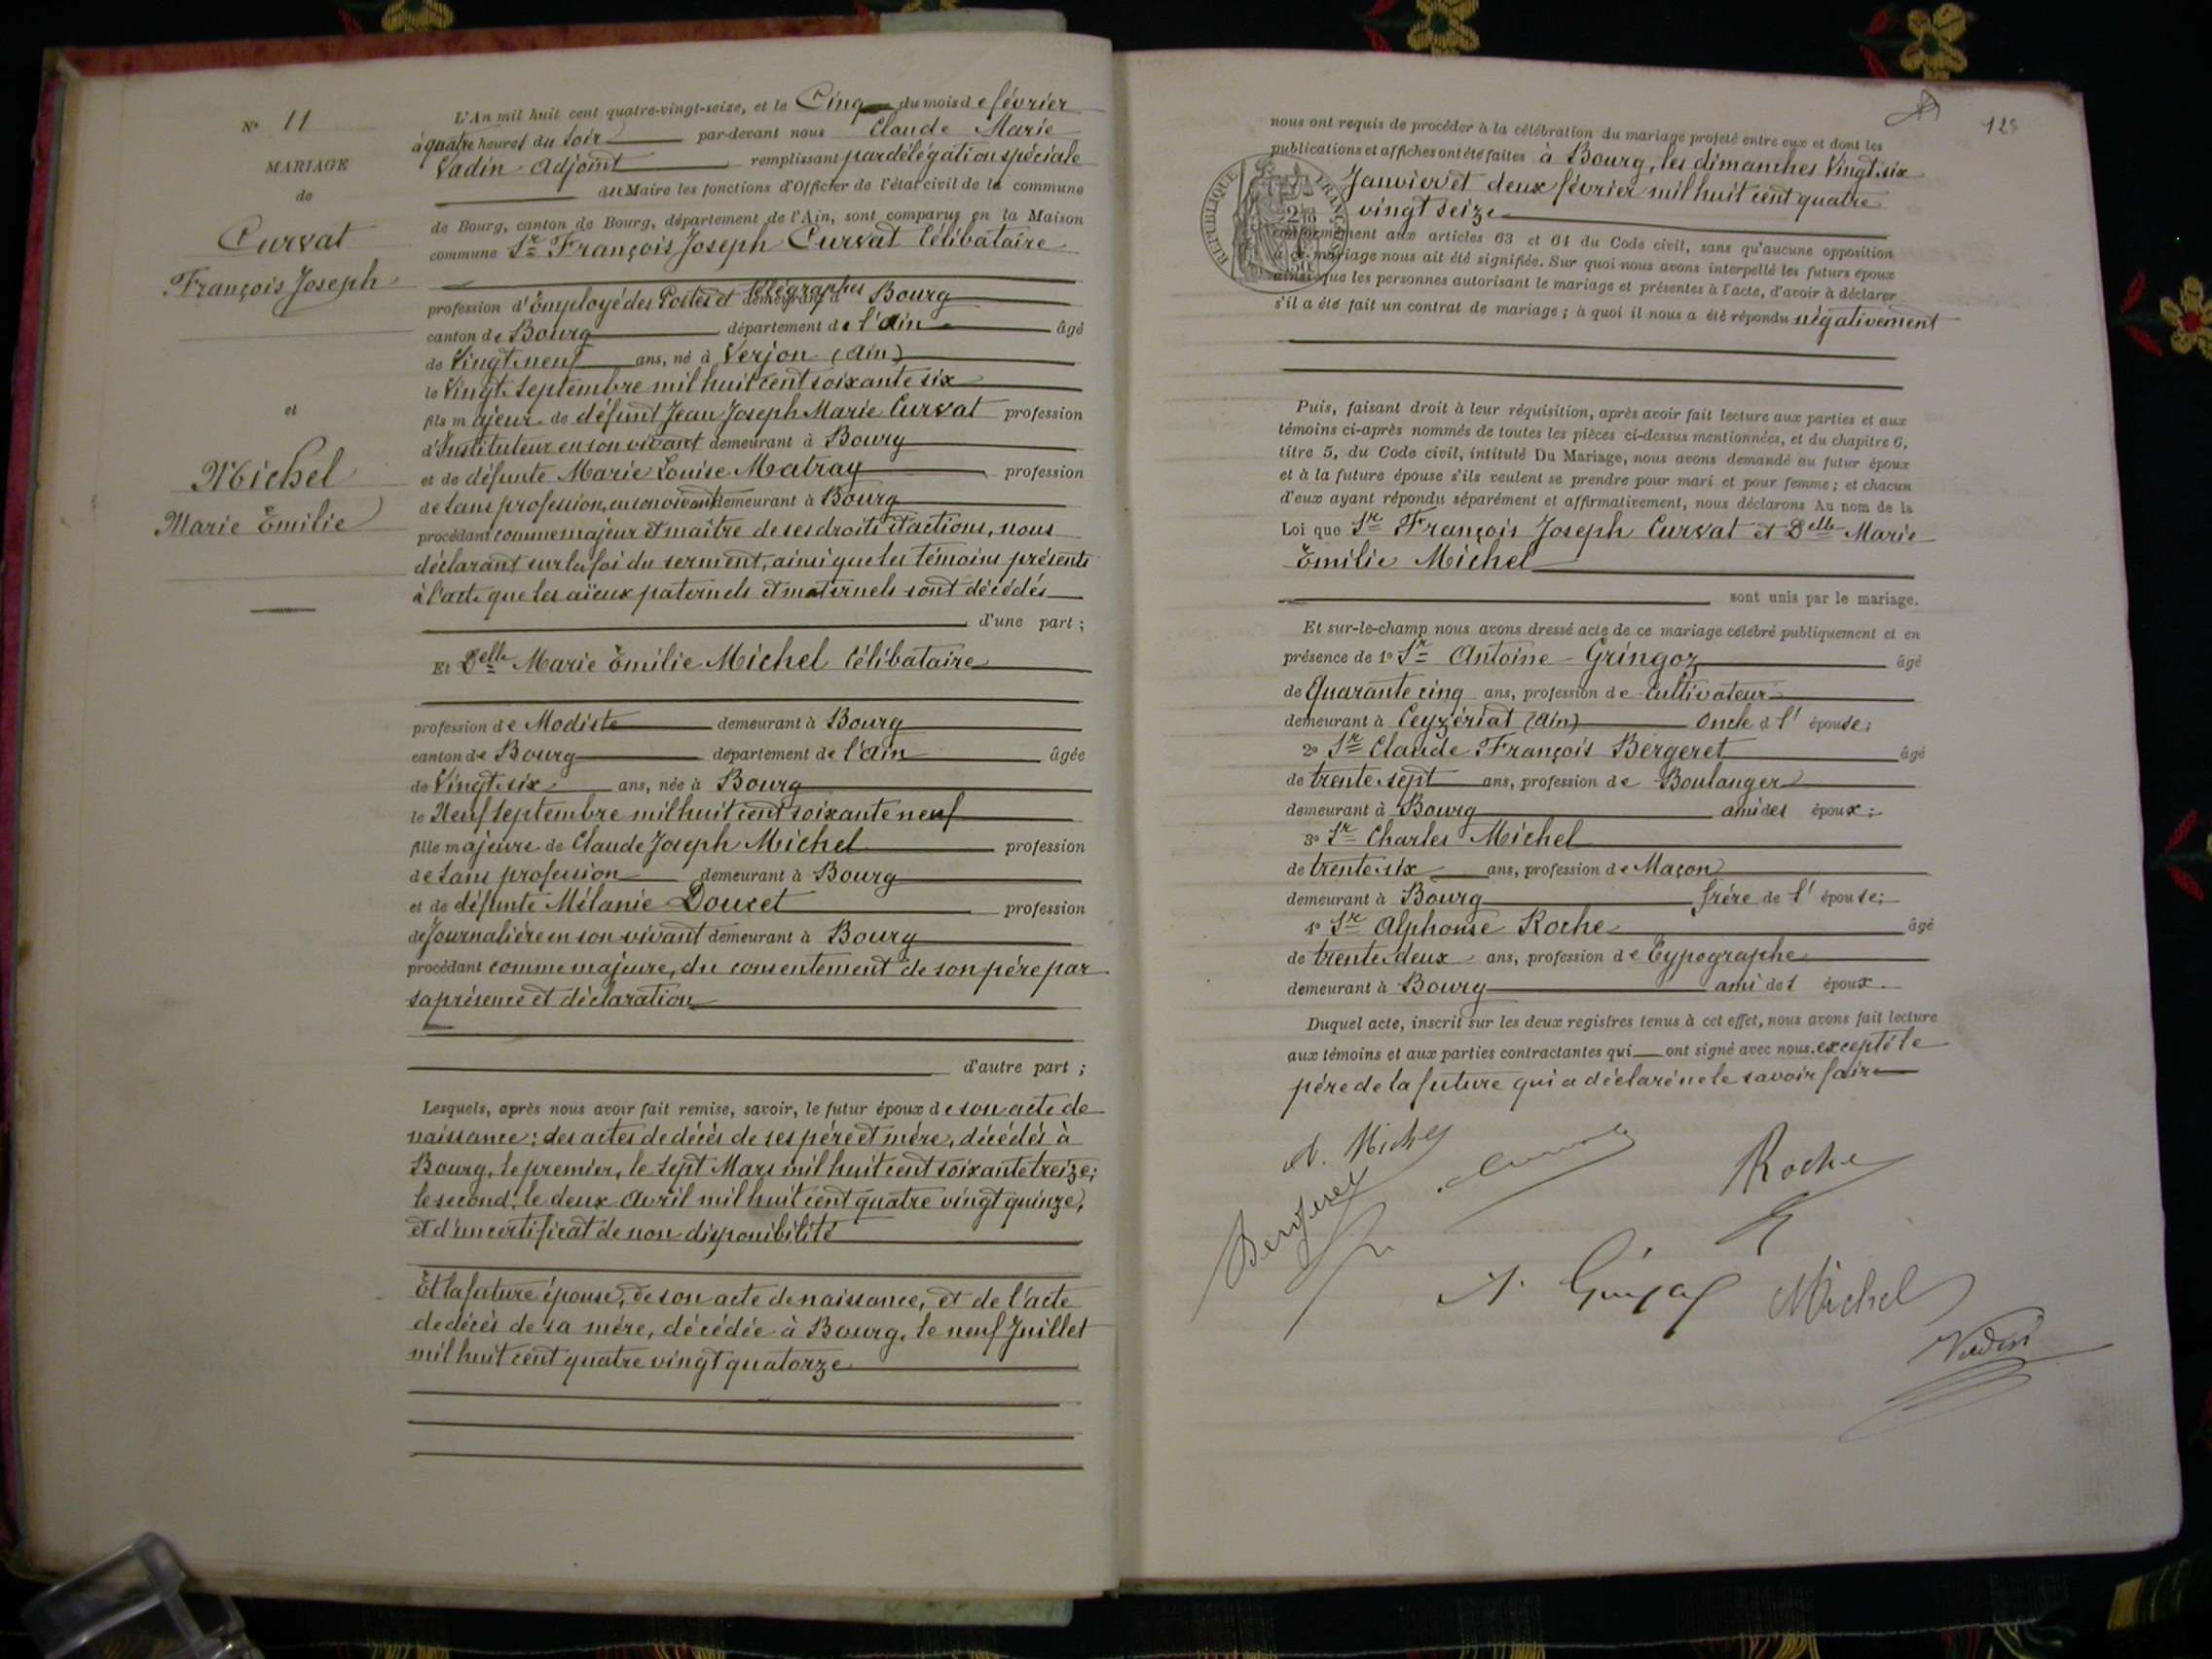 N° 11
MARIAGE
de
Curvat
François Joseph
et
Michel
Marie Emilie
L'An mil huit cent quatre-vingt-seize, et le Cinq du mois de février
à quatre heures du soir par-devant nous Claude Marie
Vadin Adjoint remplissant par délégation spéciale
du Maire les fonctions d'Officier de l'état civil de la commune
de Bourg, canton de Bourg, département de l'Ain, sont comparus en la Maison
commune Sr François Joseph Curvat Célibataire
profession d'Employé des Postes et Télégraphes demeurant à Bourg
canton de Bourg département de l'Ain âgé
de Vingt neuf ans, né à Verjon (Ain)
le Vingt Septembre mil huit cent soixante six
fils majeur de défunt Jean Joseph Marie Curvat profession
d'Instituteur en son vivant demeurant à Bourg
et de défunte Marie Louise Matray profession
de sans profession, en son vivant demeurant à Bourg
procédant comme majeur et maître de ses droits et actions, nous
déclarant sur la foi du serment, ainsi que les témoins présents
à l'acte que les aïeux paternels et maternels sont décédés
d'une part ;
Et Delle Marie Emilie Michel Célibataire
profession de Modiste demeurant à Bourg
canton de Bourg département de l'Ain âgée
de Vingt six ans, née à Bourg
le Neuf Septembre mil huit cent soixante neuf
fille majeure de Claude Joseph Michel profession
de sans profession demeurant à Bourg
et de défunte Mélanie Doucet profession
de Journalière en son vivant demeurant à Bourg
procédant comme majeure, du consentement de son père par
sa présence et déclaration
d'autre part ;
Lesquels, après nous avoir fait remise, savoir, le futur époux de son acte de
naissance ; des actes de décès de ses père et mère, décédés à
Bourg, le premier, le sept Mars mil huit cent soixante treize ;
le second, le deux Avril mil huit cent quatre vingt quinze,
et d'un certificat de non disponibilité
Et la future épouse, de son acte de naissance, et de l'acte
de décès de sa mère, décédée à Bourg, le neuf Juillet
mil huit cent quatre vingt quatorze
nous ont requis de procéder à la célébration du mariage projeté entre eux et dont les
publications et affiches ont été faites à Bourg, les dimanches Vingt six
Janvier et deux février mil huit cent quatre
vingt seize
RÉPUBLIQUE FRANÇAISE
conformément aux articles 63 et 64 du Code civil, sans qu'aucune opposition
à ce mariage nous ait été signifiée. Sur quoi nous avons interpellé les futurs époux
ainsi que les personnes autorisant le mariage et présentes à l'acte, d'avoir à déclarer
s'il a été fait un contrat de mariage ; à quoi il nous a été répondu négativement
Puis, faisant droit à leur réquisition, après avoir fait lecture aux parties et aux
témoins ci-après nommés de toutes les pièces ci-dessus mentionnées, et du chapitre 6,
titre 5, du Code civil, intitulé Du Mariage, nous avons demandé au futur époux
et à la future épouse s'ils veulent se prendre pour mari et pour femme ; et chacun
d'eux ayant répondu séparément et affirmativement, nous déclarons Au nom de la
Loi que Sr François Joseph Curvat et Delle Marie
Emilie Michel
sont unis par le mariage.
Et sur-le-champ nous avons dressé acte de ce mariage célébré publiquement et en
présence de 1° Sr Antoine Gringoz âgé
de Quarante cinq ans, profession de Cultivateur
demeurant à Ceyzériat (Ain) Oncle d l' épouse ;
2° Sr Claude François Bergeret âgé
de trente sept ans, profession de Boulanger
demeurant à Bourg ami des époux ;
3° Sr Charles Michel
de trente six ans, profession de Maçon
demeurant à Bourg frère de l' épouse ;
4° Sr Alphonse Roche âgé
de trente deux ans, profession de Typographe
demeurant à Bourg ami des époux.
Duquel acte, inscrit sur les deux registres tenus à cet effet, nous avons fait lecture
aux témoins et aux parties contractantes qui ont signé avec nous. excepté le
père de la future qui a déclaré ne le savoir faire
Michel
Bergeret
Roche
Michel
Vadin